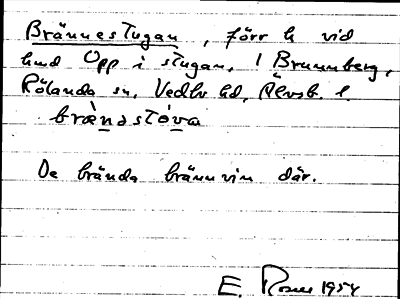 Brännestugan, förr h vid
hmd Opp i stugan, 1 Brunnberg,
Rölanda sn, Vedbo hd, Älvsb. l.
brænəstòva
De brände brännvin där.
E. Rosen 1954